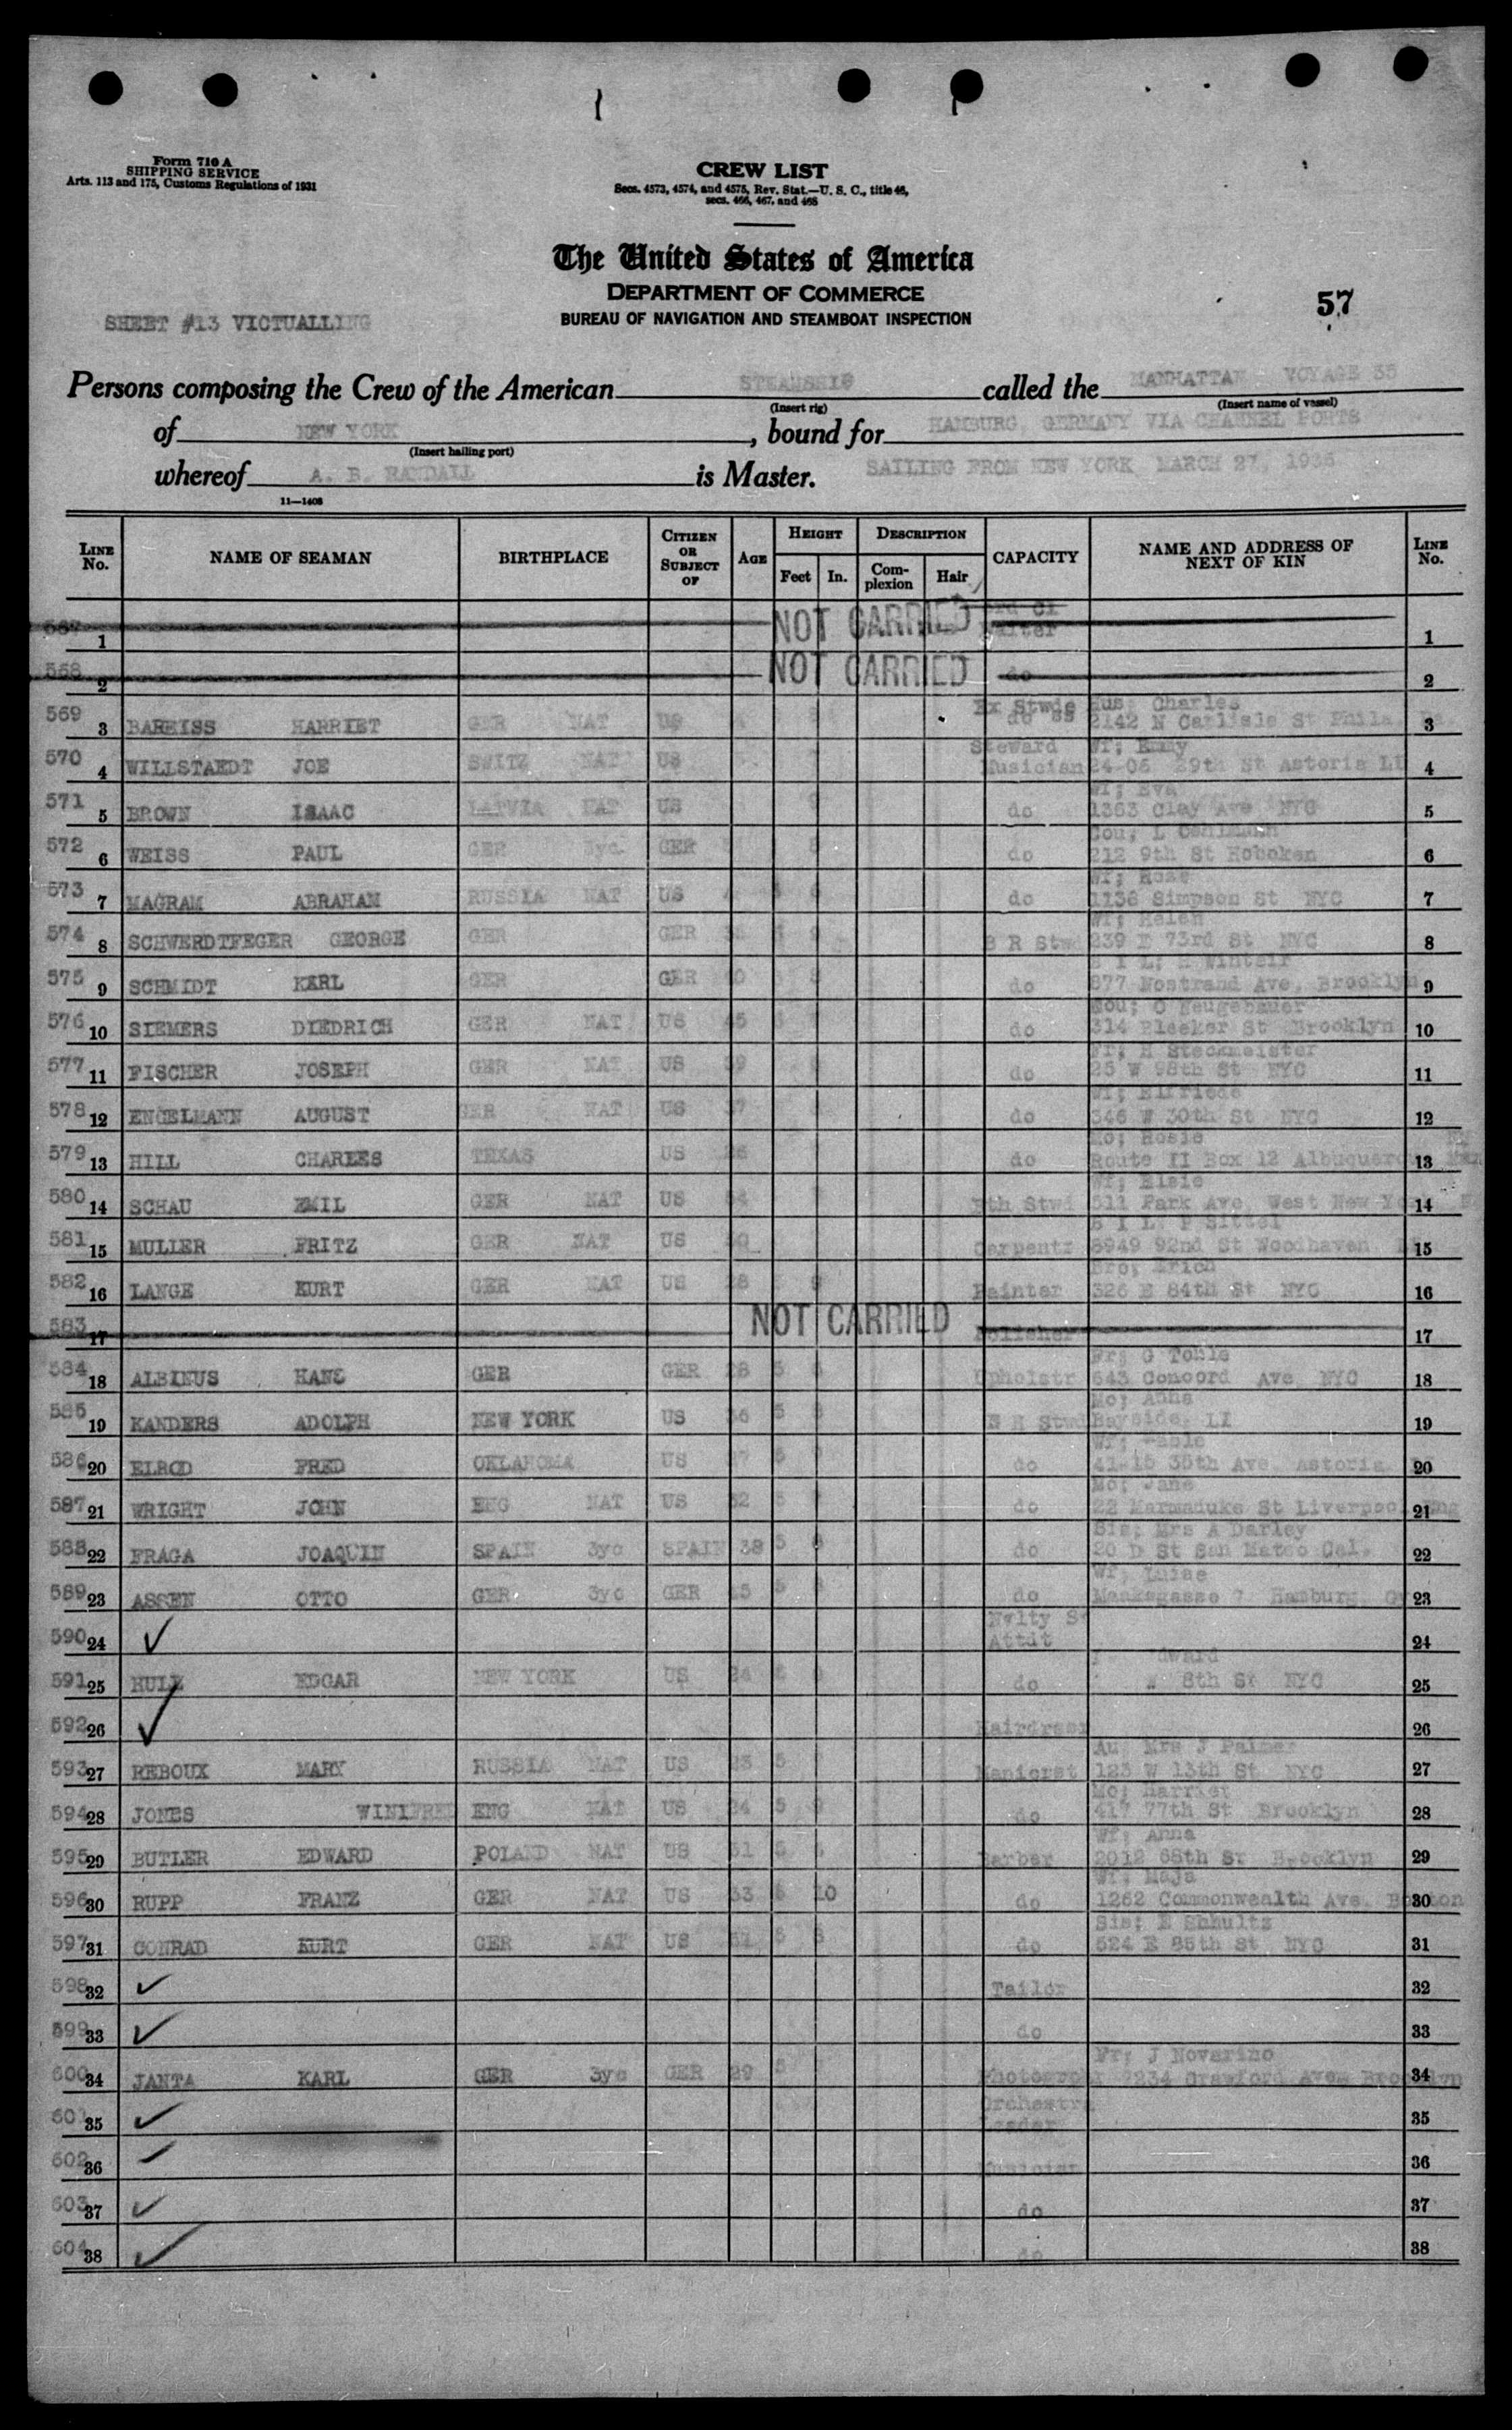 Form 710 A
SHIPPING SERVICE
Arts. 113 and 175, Customs Regulations of 1931
CREW LIST
Secs. 4573, 4574, and 4575, Rev. Stat.—U. S. C., title 46,
secs. 466, 467, and 468
The United States of America
DEPARTMENT OF COMMERCE
BUREAU OF NAVIGATION AND STEAMBOAT INSPECTION
57
SHEET #13 VICTUALLING
Persons composing the Crew of the American STEAMSHIP called the MANHATTAN VOYAGE 35
(Insert rig) (Insert name of vessel)
of NEW YORK, bound for HAMBURG, GERMANY VIA CHANNEL PORTS
(Insert hailing port)
whereof A. B. RANDALL is Master. SAILING FROM NEW YORK MARCH 27, 1936
11—1408
LINE No. NAME OF SEAMAN BIRTHPLACE CITIZEN OR SUBJECT OF AGE HEIGHT Feet In. DESCRIPTION Complexion Hair CAPACITY NAME AND ADDRESS OF NEXT OF KIN LINE No.
567 1 NOT CARRIED 3rd Cl Waiter 1
568 2 NOT CARRIED do 2
569 3 BAREISS HARRIET GER NAT US Ex Stwds do Hus; Charles 2142 N Carlisle St Phila. 3
570 4 WILLSTAEDT JOE SWITZ NAT US Steward Musician Wf; Emmy 24-06 29th St Astoria LI 4
571 5 BROWN ISAAC LATVIA NAT US do Wf; Eva 1363 Clay Ave NYC 5
572 6 WEISS PAUL GER 3yc GER do Cou; L 212 9th St Hoboken 6
573 7 MAGRAM ABRAHAM RUSSIA NAT US do Wf; Rose 1136 Simpson St NYC 7
574 8 SCHWERDTFEGER GEORGE GER GER B R Stwd Wf; Helen 239 E 73rd St NYC 8
575 9 SCHMIDT KARL GER GER 40 do B I L; H 877 Nostrand Ave, Brooklyn 9
576 10 SIEMERS DIEDRICH GER NAT US 45 do Cou; O Neugebauer 314 Bleeker St Brooklyn 10
577 11 FISCHER JOSEPH GER NAT US 39 do Fr; H Steckmeister 25 W 98th St NYC 11
578 12 ENGELMANN AUGUST GER NAT US 37 do Wf; Elfriede 346 W 30th St NYC 12
579 13 HILL CHARLES TEXAS US 26 do Mo; Rosie Route II Box 12 Albuquerque 13
580 14 SCHAU EMIL GER NAT US Bth Stwd Wf; Elsie 511 Park Ave, West New York 14
581 15 MULLER FRITZ GER NAT US Carpentr B I L; P Sittel 8949 92nd St Woodhaven 15
582 16 LANGE KURT GER NAT US 28 Painter Bro; Erich 326 E 84th St NYC 16
583 17 NOT CARRIED Polisher 17
584 18 ALBINUS HANS GER GER 28 5 Upholstr Fr; G Tohle 643 Concord Ave NYC 18
585 19 KANDERS ADOLPH NEW YORK US 36 5 Stwd Mo; Anna Bayside, LI 19
586 20 ELROD FRED OKLAHOMA US 27 5 do Wf; 41-15 35th Ave, Astoria 20
587 21 WRIGHT JOHN ENG NAT US 32 5 do Mo; Jane 22 Marmaduke St Liverpool Eng 21
588 22 FRAGA JOAQUIN SPAIN 3yc SPAIN 38 5 do Sis; Mrs A Darley 20 D St San Mateo Cal. 22
589 23 ASSEN OTTO GER 3yc GER 5 do Wf; Luise 7 Hamburg, 23
590 24 ✓ Nvlty St Attdt 24
591 25 RULE EDGAR NEW YORK US 24 do Edward 8th St NYC 25
592 26 ✓ Hairdresr 26
593 27 REBOUX MARY RUSSIA NAT US 23 5 Manicrst Au; Mrs J Palmer 123 W 13th St NYC 27
594 28 JONES WINIFRED ENG NAT US 24 5 do Mo; Harriet 417 77th St Brooklyn 28
595 29 BUTLER EDWARD POLAND NAT US 51 5 Barber Wf; Anna 2012 68th St Brooklyn 29
596 30 RUPP FRANZ GER NAT US 33 5 10 do Wf; Maja 1262 Commonwealth Ave. Boston 30
597 31 CONRAD KURT GER NAT US 5 8 do Sis; E Shhultz 524 E 85th St NYC 31
598 32 ✓ Tailor 32
599 33 ✓ do 33
600 34 JANTA KARL GER 3yc GER 29 5 Photogrphr Fr; J Novarino 7234 Crawford Ave, Brooklyn 34
601 35 ✓ Orchestra Leader 35
602 36 ✓ Musician 36
603 37 ✓ do 37
604 38 ✓ do 38